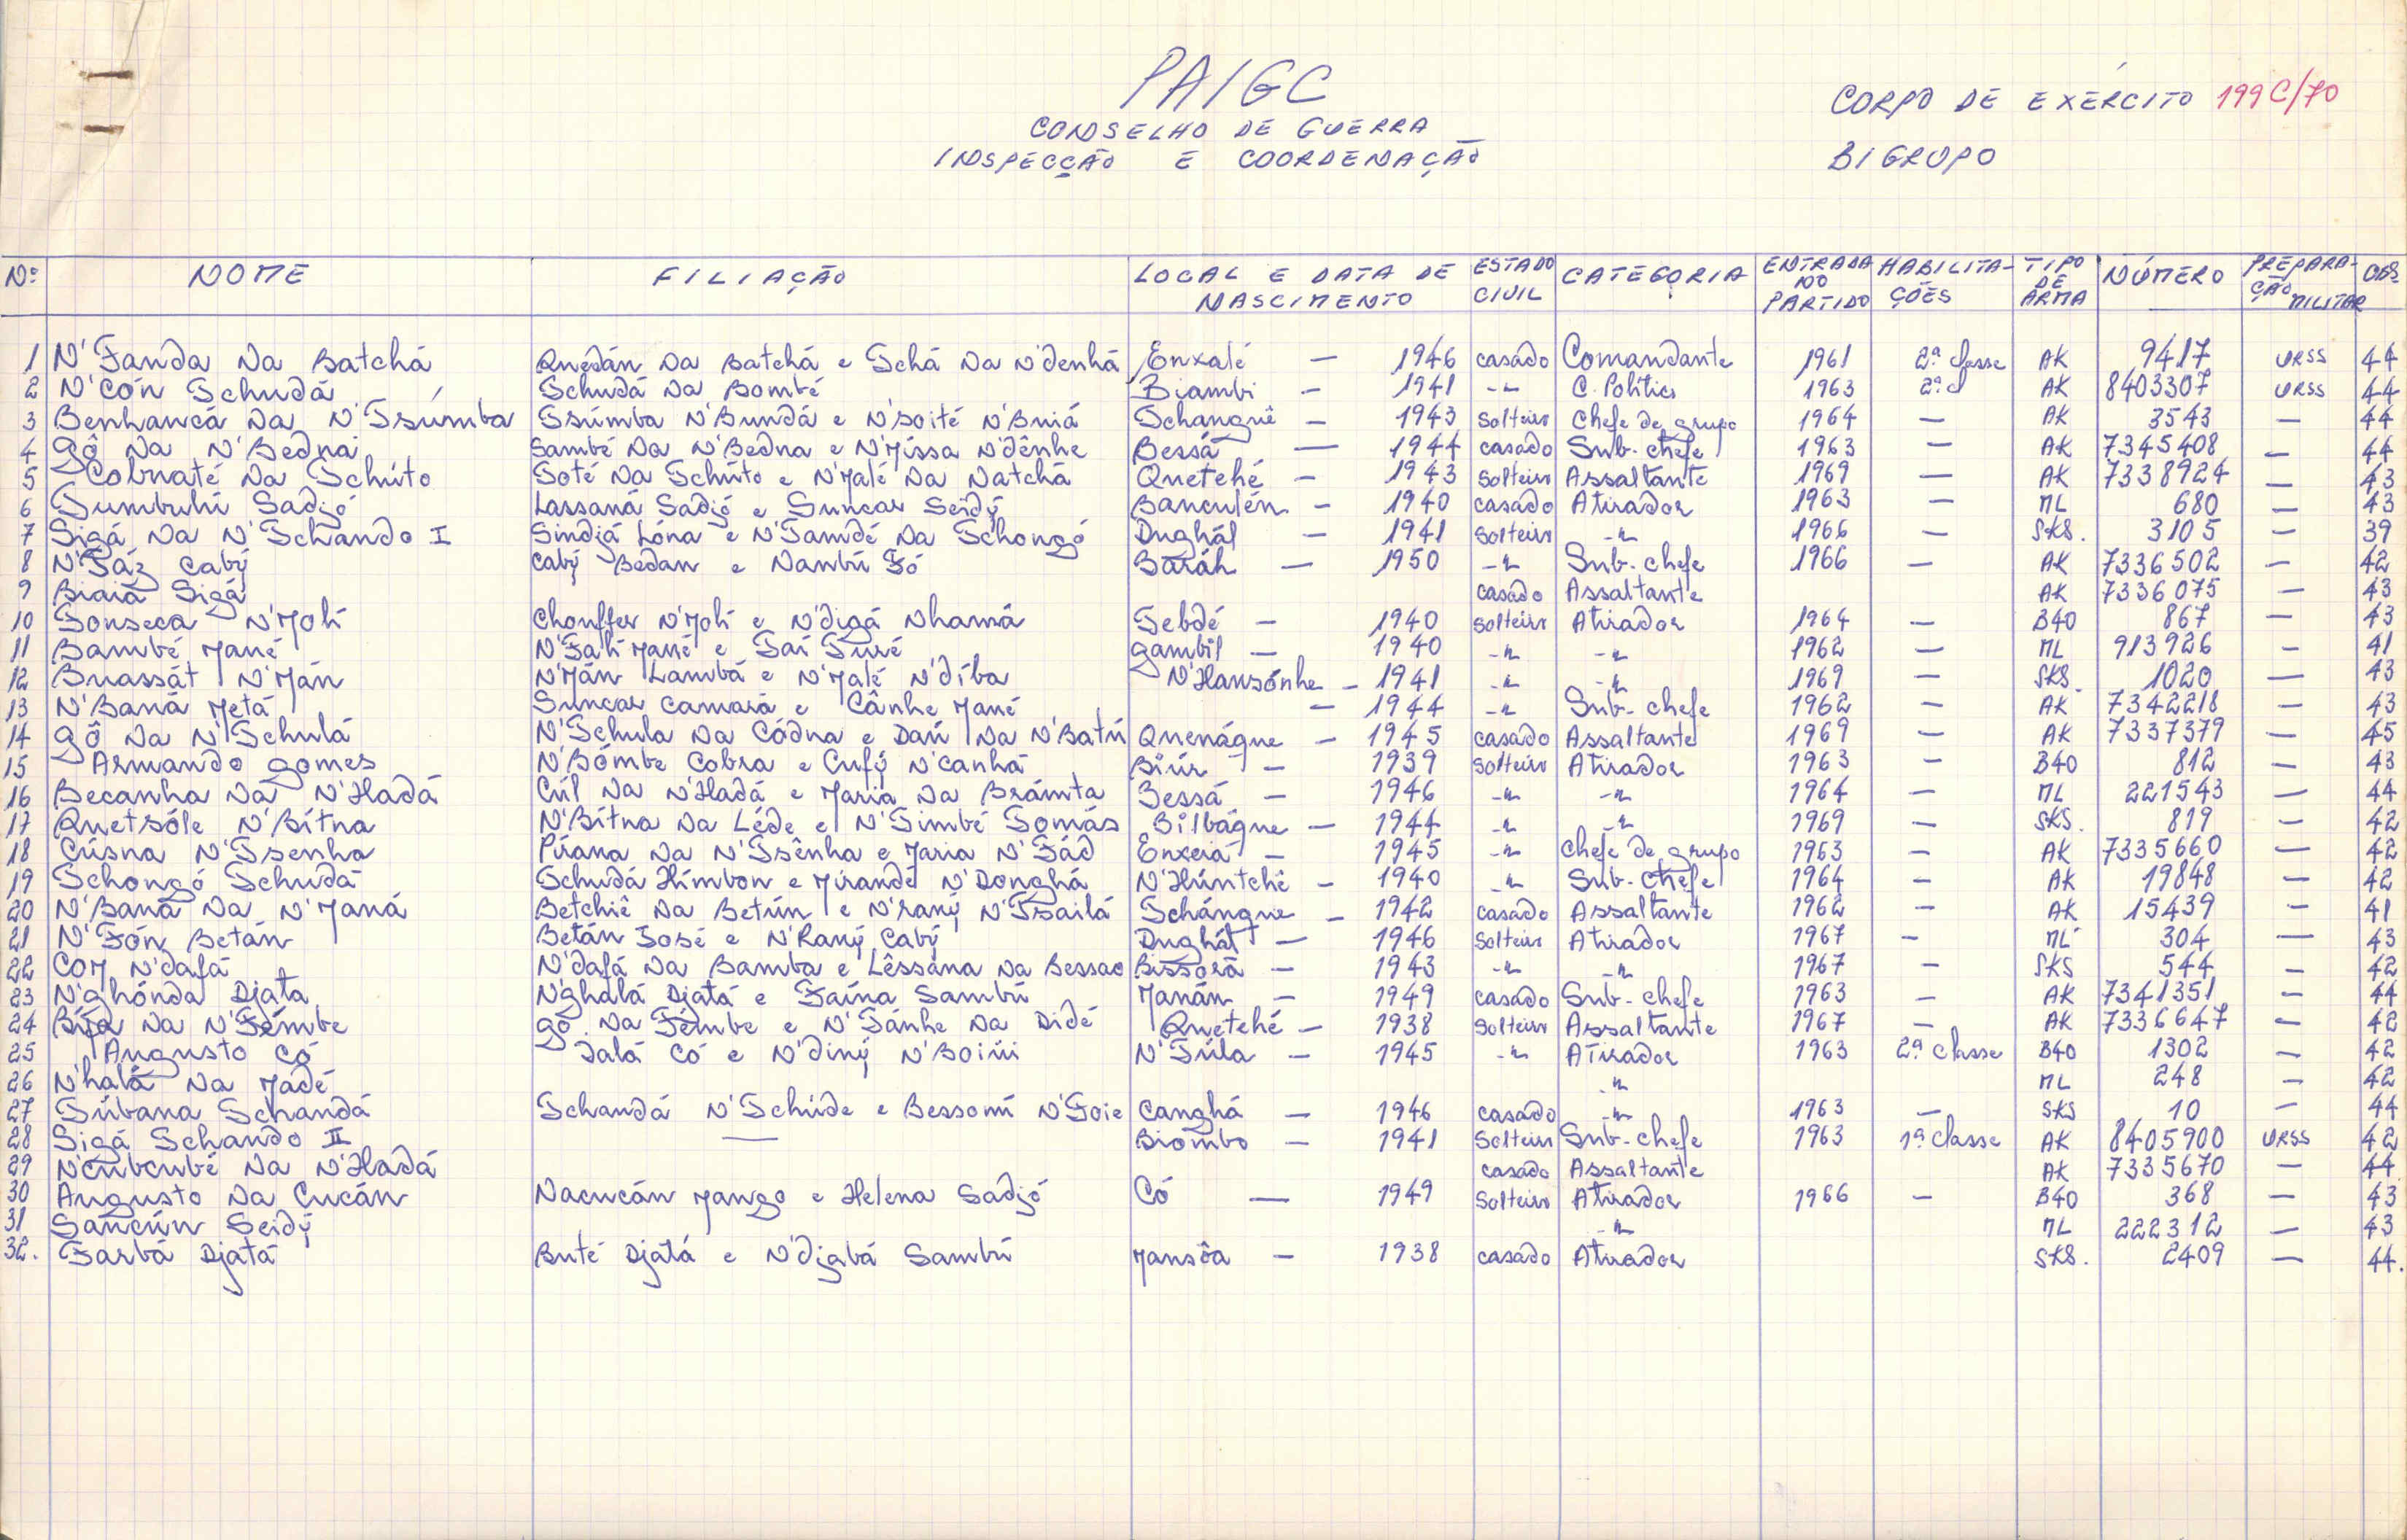 PAIGC
CONSELHO DE GUERRA
INSPECÇÃO E COORDENAÇÃO
CORPO DE EXÉRCITO 199C/70
BIGRUPO
Nº NOME FILIAÇÃO LOCAL E DATA DE NASCIMENTO ESTADO CIVIL CATEGORIA ENTRADA NO PARTIDO HABILITAÇÕES TIPO DE ARMA NÚMERO PREPARAÇÃO MILITAR OBS.
1 N'Fanda Na Batchá Quédán Na Batchá e Tchá Na N'denhá Enxalé — 1946 casado Comandante 1961 2ª classe AK 9417 URSS 44
2 N'Cón Tchudá Tchudá Na Bombé Biambi — 1941 -"- C. Político 1963 2ª cl AK 8403307 URSS 44
3 Benhancá Na N'Tsúmba Tsúmba N'Bundá e N'soité N'Buiá Tchanguê — 1943 Solteiro Chefe de grupo 1964 — AK 3543 — 44
4 Gô Na N'Bedna Sambé Na N'Bedna e N'Missa N'dênhe Bessá — 1944 casado Sub-chefe 1963 — AK 7345408 — 44
5 Cobnaté Na Tchúto Toté Na Tchúto e N'Malé Na Natchá Quetehé — 1943 Solteiro Assaltante 1969 — AK 7338924 — 43
6 Tumbuhú Sadjó Lassaná Sadjó e Suncar Seidy Banculén — 1940 casado Atirador 1963 — ML 680 — 43
7 Sigá Na N'Tchando I Sindjá Lóna e N'Tamdé Na Tchongó Dughál — 1941 Solteiro -"- 1966 — SKS. 3105 — 39
8 N'Táz Caby Caby Bedan e Nambú Fó Baráh — 1950 -"- Sub-chefe 1966 — AK 7336502 — 42
9 Biaiá Sigá casado Assaltante AK 7336075 — 43
10 Fonseca N'Moli Chouffer N'Moli e N'digá Nhamá Tebdé — 1940 Solteiro Atirador 1964 — B40 867 — 43
11 Bambé Mané N'Fali Mané e Tai Turé Gambil — 1940 -"- -"- 1962 — ML 913926 — 41
12 Buassát N'Mán N'Mán Lambá e N'Malé N'díba N'Hansónhe — 1941 -"- -"- 1969 — SKS. 1020 — 43
13 N'Baná Metá Suncar Camará e Cânhe Mané — 1944 -"- Sub-chefe 1962 — AK 7342218 — 43
14 Gô Na N'Tchulá N'Tchula Na Códna e Daú Na N'Batú Quenágue — 1945 casado Assaltante 1969 — AK 7337379 — 45
15 Armando Gomes N'Bómbe Cobra e Cufy N'canhá Biúr — 1939 Solteiro Atirador 1963 — B40 812 — 43
16 Becanha Na N'Hadá Cúl Na N'Hadá e Maria Na Brámta Bessá — 1946 -"- -"- 1964 — ML 221543 — 44
17 Quetsóle N'Bítna N'Bítna Na Léde e N'Timbé Tomás Bilbágue — 1944 -"- -"- 1969 — SKS. 819 — 42
18 Cúsna N'Tsenha Púana Na N'Tsênha e Maria N'Fád Enxeiá — 1945 -"- Chefe de grupo 1963 — AK 7335660 — 42
19 Tchongó Tchudá Tchudá Hímbon e Mirandé N'Donghá N'Húntchê — 1940 -"- Sub-chefe 1964 — AK 19848 — 42
20 N'Baná Na N'Maná Betchiê Na Betún e N'rany N'Tsailá Tchángue — 1942 casado Assaltante 1962 — AK 15439 — 41
21 N'Fón Betán Betán José e N'Rany Caby Dughál — 1946 Solteiro Atirador 1967 — ML 304 — 43
22 Com N'dafá N'dafá Na Bamba e Lêssána Na Bessao Bissorã — 1943 -"- -"- 1967 — SKS 544 — 42
23 N'ghónda Djata N'ghalá Djatá e Faína Sambú Manán — 1949 casado Sub-chefe 1963 — AK 7341351 — 44
24 Na N'Fémbe Gô Na Fémbe e N'Tánhe Na Didé Quetehé — 1938 Solteiro Assaltante 1967 — AK 7336647 — 42
25 Augusto Có Jalá Có e N'diny N'Boiúi N'Túla — 1945 -"- Atirador 1963 2ª classe B40 1302 — 42
26 N'halá Na Madé -"- ML 248 — 42
27 Túbana Tchandá Tchandá N'Tchúde e Bessomí N'Foie Canghá — 1946 casado -"- 1963 — SKS 10 — 44
28 Sigá Tchando II — Biombo — 1941 Solteiro Sub-chefe 1963 1ª classe AK 8405900 URSS 42
29 N'cubcubé Na N'Hadá casado Assaltante AK 7335670 — 44
30 Augusto Na Cucán Nacucán Mango e Helena Sadjó Có — 1949 Solteiro Atirador 1966 — B40 368 — 43
31 Sancún Seidy -"- ML 222312 — 43
32. Farbá Djatá Buté Djatá e N'djabá Sambú Mansôa — 1938 casado Atirador SKS. 2409 — 44.